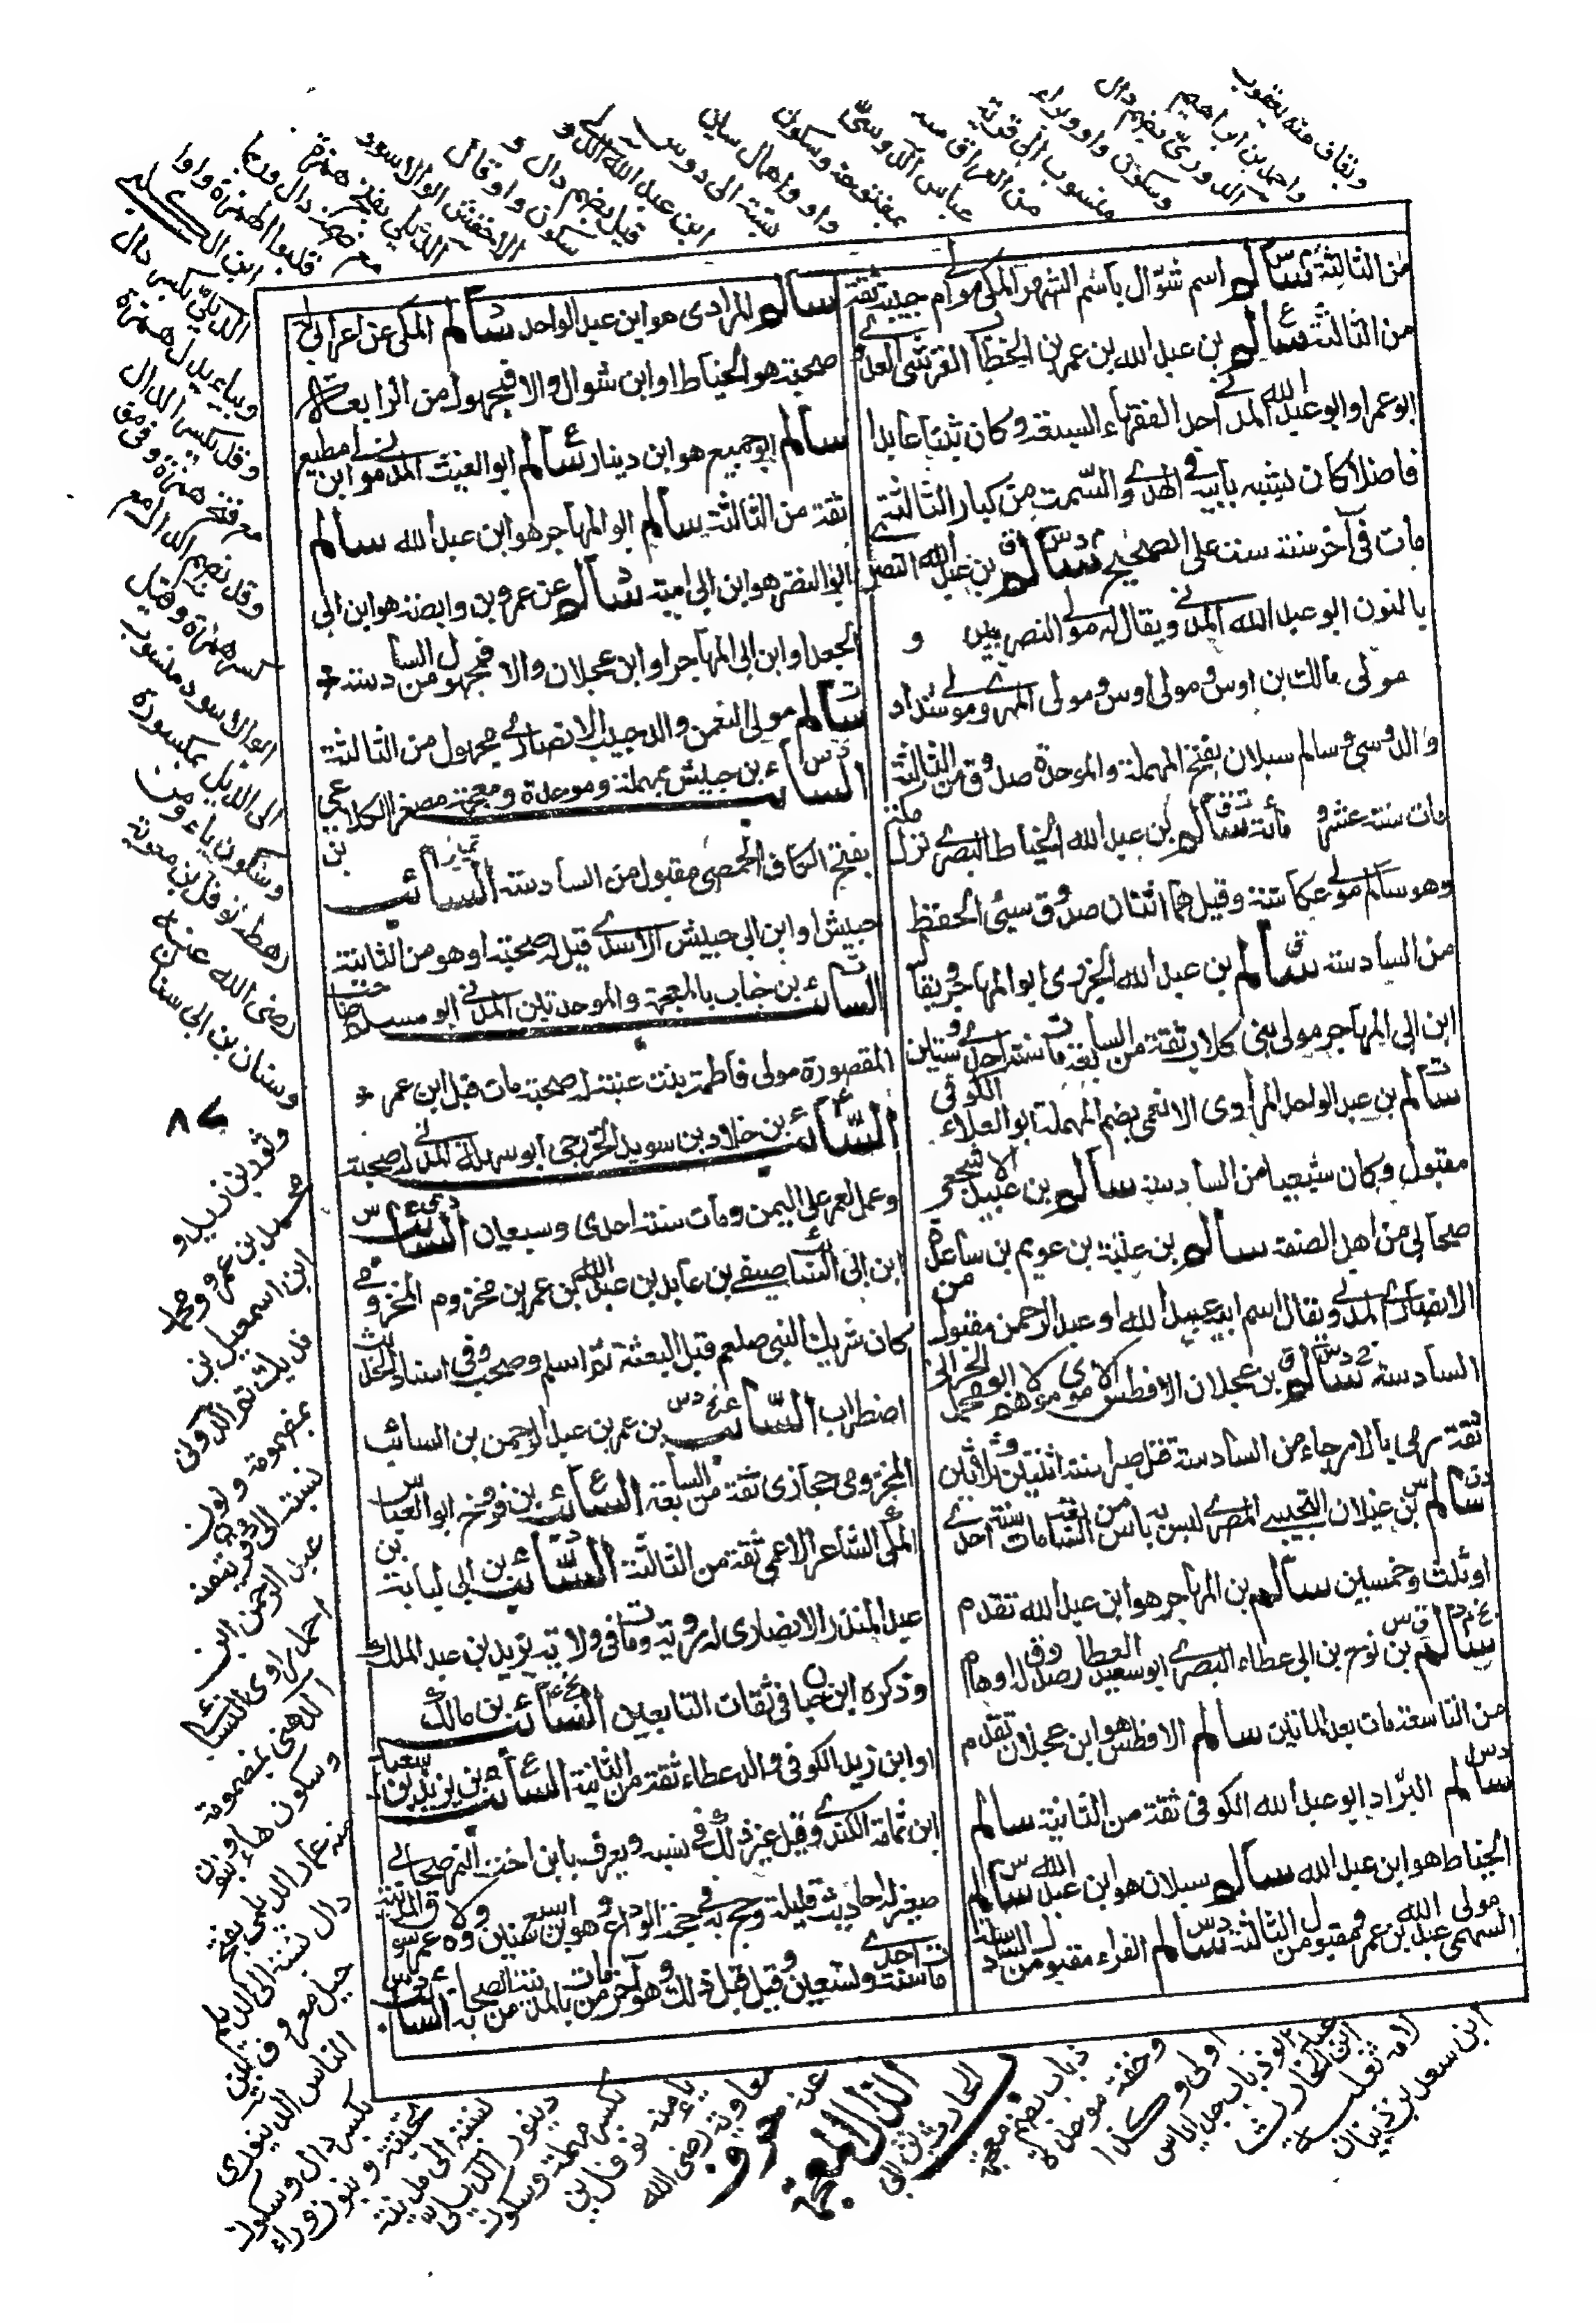 من الثالثة سالم اسم شوال باسم الشهر المكي مولى ام حبيبة ثقة
من الثالثة سالم بن عبد الله بن عمر بن الخطاب القرشي العدوي
ابو عمر او ابو عبد الله المدني احد الفقهاء السبعة وكان ثبتا عابدا
فاضلا كان يشبه بابيه في الهدي والسمت من كبار الثالثة
مات في آخر سنة ست على الصحيح سالم بن عبد الله النصري
بالنون ابو عبد الله المدني ويقال له مولى النصريين و
مولى مالك بن اوس ومولى اوس ومولى المهري ومولى شداد
والدوسي وسالم سبلان بفتح المهملة والموحدة صدوق من الثالثة
مات سنة عشر ومائة سالم بن عبد الله الخياط البصري نزل مكة
وهو سالم مولى عكاشة وقيل هما اثنان صدوق سيئ الحفظ
من السادسة سالم بن عبد الله الجزري ابو المهاجر ويقال
ابن ابي المهاجر مولى بني كلاب ثقة من السابعة مات سنة احدى وستين
سالم بن عبد الواحد المرادي الانعمي بضم المهملة ابو العلاء الكوفي
مقبول وكان شيعيا من السادسة سالم بن عبيد الاشجعي
صحابي من اهل الصفة سالم بن عتبة بن عويم بن ساعدة
الانصاري المدني ويقال اسم ابيه عبيد الله او عبد الرحمن مقبول من
السادسة سالم بن عجلان الافطس الاموي مولاهم ابو محمد الحراني
ثقة رمي بالارجاء من السادسة قتل صبرا سنة اثنتين وثلاثين
سالم بن غيلان التجيبي المصري ليس به باس من السابعة مات سنة احدى
او ثلث وخمسين سالم بن المهاجر هو ابن عبد الله تقدم
سالم بن نوح بن ابي عطاء البصري ابو سعيد العطار صدوق له اوهام
من التاسعة مات بعد المائتين سالم الافطس هو ابن عجلان تقدم
سالم البراد ابو عبد الله الكوفي ثقة من الثانية سالم
الخياط هو ابن عبد الله سالم سبلان هو ابن عبد الله سالم
السهمي مولى عبد الله بن عمرو مقبول من الثالثة سالم الفراء مقبول من السادسة
سالم المرادي هو ابن عبد الواحد سالم المكي عن اعرابي له
صحبة هو الخياط او ابن شوال والا فمجهول من الرابعة
سالم ابو جميع هو ابن دينار سالم ابو الغيث المدني مولى ابن مطيع
ثقة من الثالثة سالم ابو المهاجر هو ابن عبد الله سالم
ابو النضر هو ابن ابي امية سالم عن عمرو بن وابصة هو ابن ابي
الجعد او ابن ابي المهاجر او ابن عجلان والا فمجهول من السادسة
سالم مولى النعمن والد حبيب الانصاري مجهول من الثالثة
السائب بن حبيش بمهملة وموحدة ومعجمة مصغر الكلاعي
بفتح الكاف الحمصي مقبول من السادسة السائب بن
حبيش او ابن ابي حبيش الاسدي قيل له صحبة او هو من الثانية
السائب بن خباب بالمعجمة والموحدتين المدني ابو مسلم صاحب
المقصورة مولى فاطمة بنت عتبة له صحبة مات قبل ابن عمر
السائب بن خلاد بن سويد الخزرجي ابو سهلة المدني له صحبة
وعمل لعمر على اليمن ومات سنة احدى وسبعين السائب
ابن ابي السائب صيفي بن عابد بن عبد الله بن عمر بن مخزوم المخزومي
كان شريك النبي صلعم قبل البعثة ثم اسلم وصحب وفي اسناد الحديث
اضطراب السائب بن عمر بن عبد الرحمن بن السائب
المخزومي حجازي ثقة من السابعة السائب بن فروخ ابو العباس
المكي الشاعر الاعمى ثقة من الثالثة السائب بن ابي لبابة بن
عبد المنذر الانصاري له رؤية ومات في ولاية يزيد بن عبد الملك
وذكره ابن حبان في ثقات التابعين السائب بن مالك
او ابن زيد الكوفي والد عطاء ثقة من الثانية السائب بن يزيد بن سعيد
ابن ثمامة الكندي وقيل غير ذلك في نسبه ويعرف بابن اخت النمر صحابي
صغير له احاديث قليلة وحج به في حجة الوداع وهو ابن سبع سنين وولاه عمر سوق المدينة
مات سنة احدى وتسعين وقيل قبل ذلك وهو آخر من مات بالمدينة من الصحابة السائب
ونقاف منه يعقوب
واحمد بن ابراهيم
الدوري بضم دال
وسكون واو وراء
منسوب الى قرية
من العراق منه
عباس الدوسي
بمفتوحة وسكون
واو واهمال سين
نسبة الى دوس
ابن عبد الله الدو
قيل بضم دال و
سكون واو قال
الاخفش ابو الاسود
الدئلي بفتح همزة
مع ضمة دال وربما
قلبوا الهمزة واوا
ابن الكلبي
الديلي بكسر دال
وبياء بدل همزة
وقد بكسر الدال
مع فتح همزة وفي مق
وقد بضم الدال مع
كسر همزة وقيل
ابو الاسود منسوب
الى الديل بمكسورة
وسكون ياء ومن
رهطه نوفل بن معوية
رضي الله عنه
وسنان بن ابي سنان
وثور بن زيد و
محمد بن عمرو ومحمد
ابن اسمعيل بن
فديك ثم الدوني
بمضمومة ونون
نسبة الى
عبد الرحمن ابن
احمد راوي النسائي
الدهني بمضمومة
وسكون هاء ونون
منه عمار الديلمي بفتح
دال نسبة الى الديلم
جبل معروف من
الناس الدينوري
بكسر دال وسكون
تحتية وبنون وراء
نسبة الى مدينة
دينور الديلي
بكسر مهملة وسكون
ياء منه نوفل بن
معاوية رضي الله
عنه حرف
الذال المعجمة
الحارث بن ابي
ذباب بضم معجمة
وخفة موحدة
اولى وكذا
عبد
ابو ذباب جد اياس
ابن الحارث
لامه ثعلبة
ابن سعد بن ذبيان